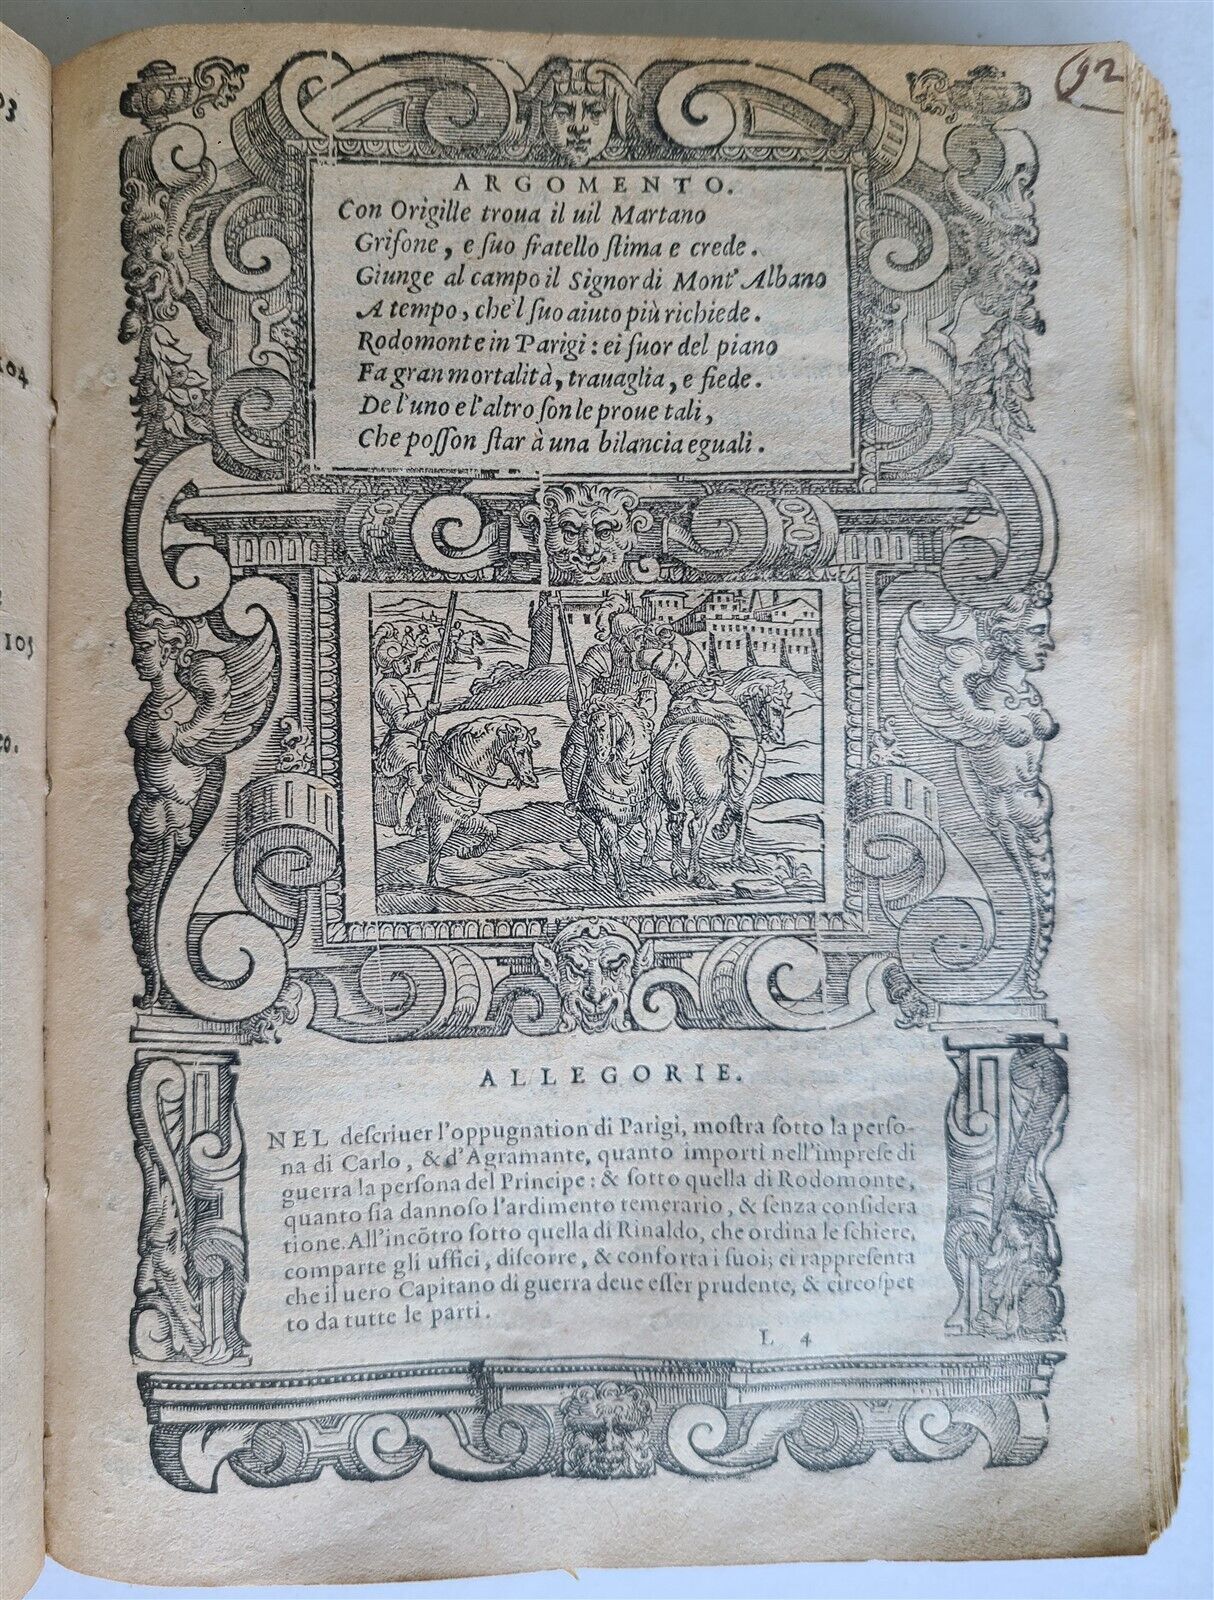 03
104
105
co.
92
ARGOMENTO.
Con Origille troua il uil Martano
Grifone, e ſuo fratello ſtima e crede.
Giunge al campo il Signor di Mont' Albano
A tempo, che'l ſuo aiuto più richiede.
Rodomonte in Parigi: ei fuor del piano
Fa gran mortalità, trauaglia, e fiede.
De l'uno e l'altro ſon le proue tali,
Che poſſon ſtar à una bilancia eguali.
ALLEGORIE.
NEL deſcriuer l'oppugnation di Parigi, moſtra ſotto la perſo-
na di Carlo, & d'Agramante, quanto importi nell'impreſe di
guerra la perſona del Principe: & ſotto quella di Rodomonte,
quanto ſia dannoſo l'ardimento temerario, & ſenza conſidera
tione. All'incōtro ſotto quella di Rinaldo, che ordina le ſchiere,
comparte gli uffici, diſcorre, & conforta i ſuoi; ci rappreſenta
che il uero Capitano di guerra deue eſſer prudente, & circoſpet
to da tutte le parti.
L 4